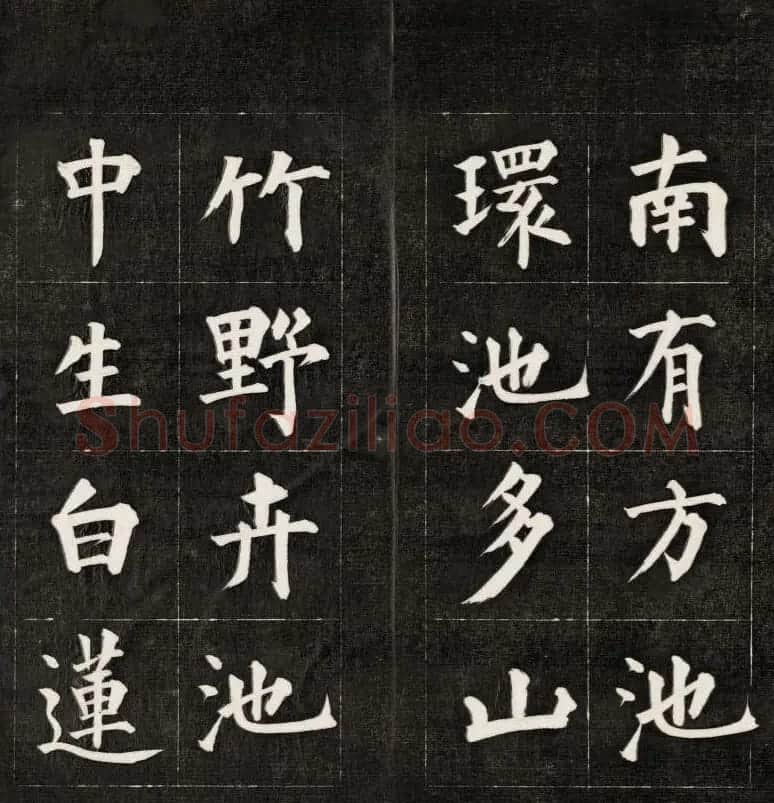 南有方池
環池多山
竹野卉池
中生白蓮
Shufaziliao.COM